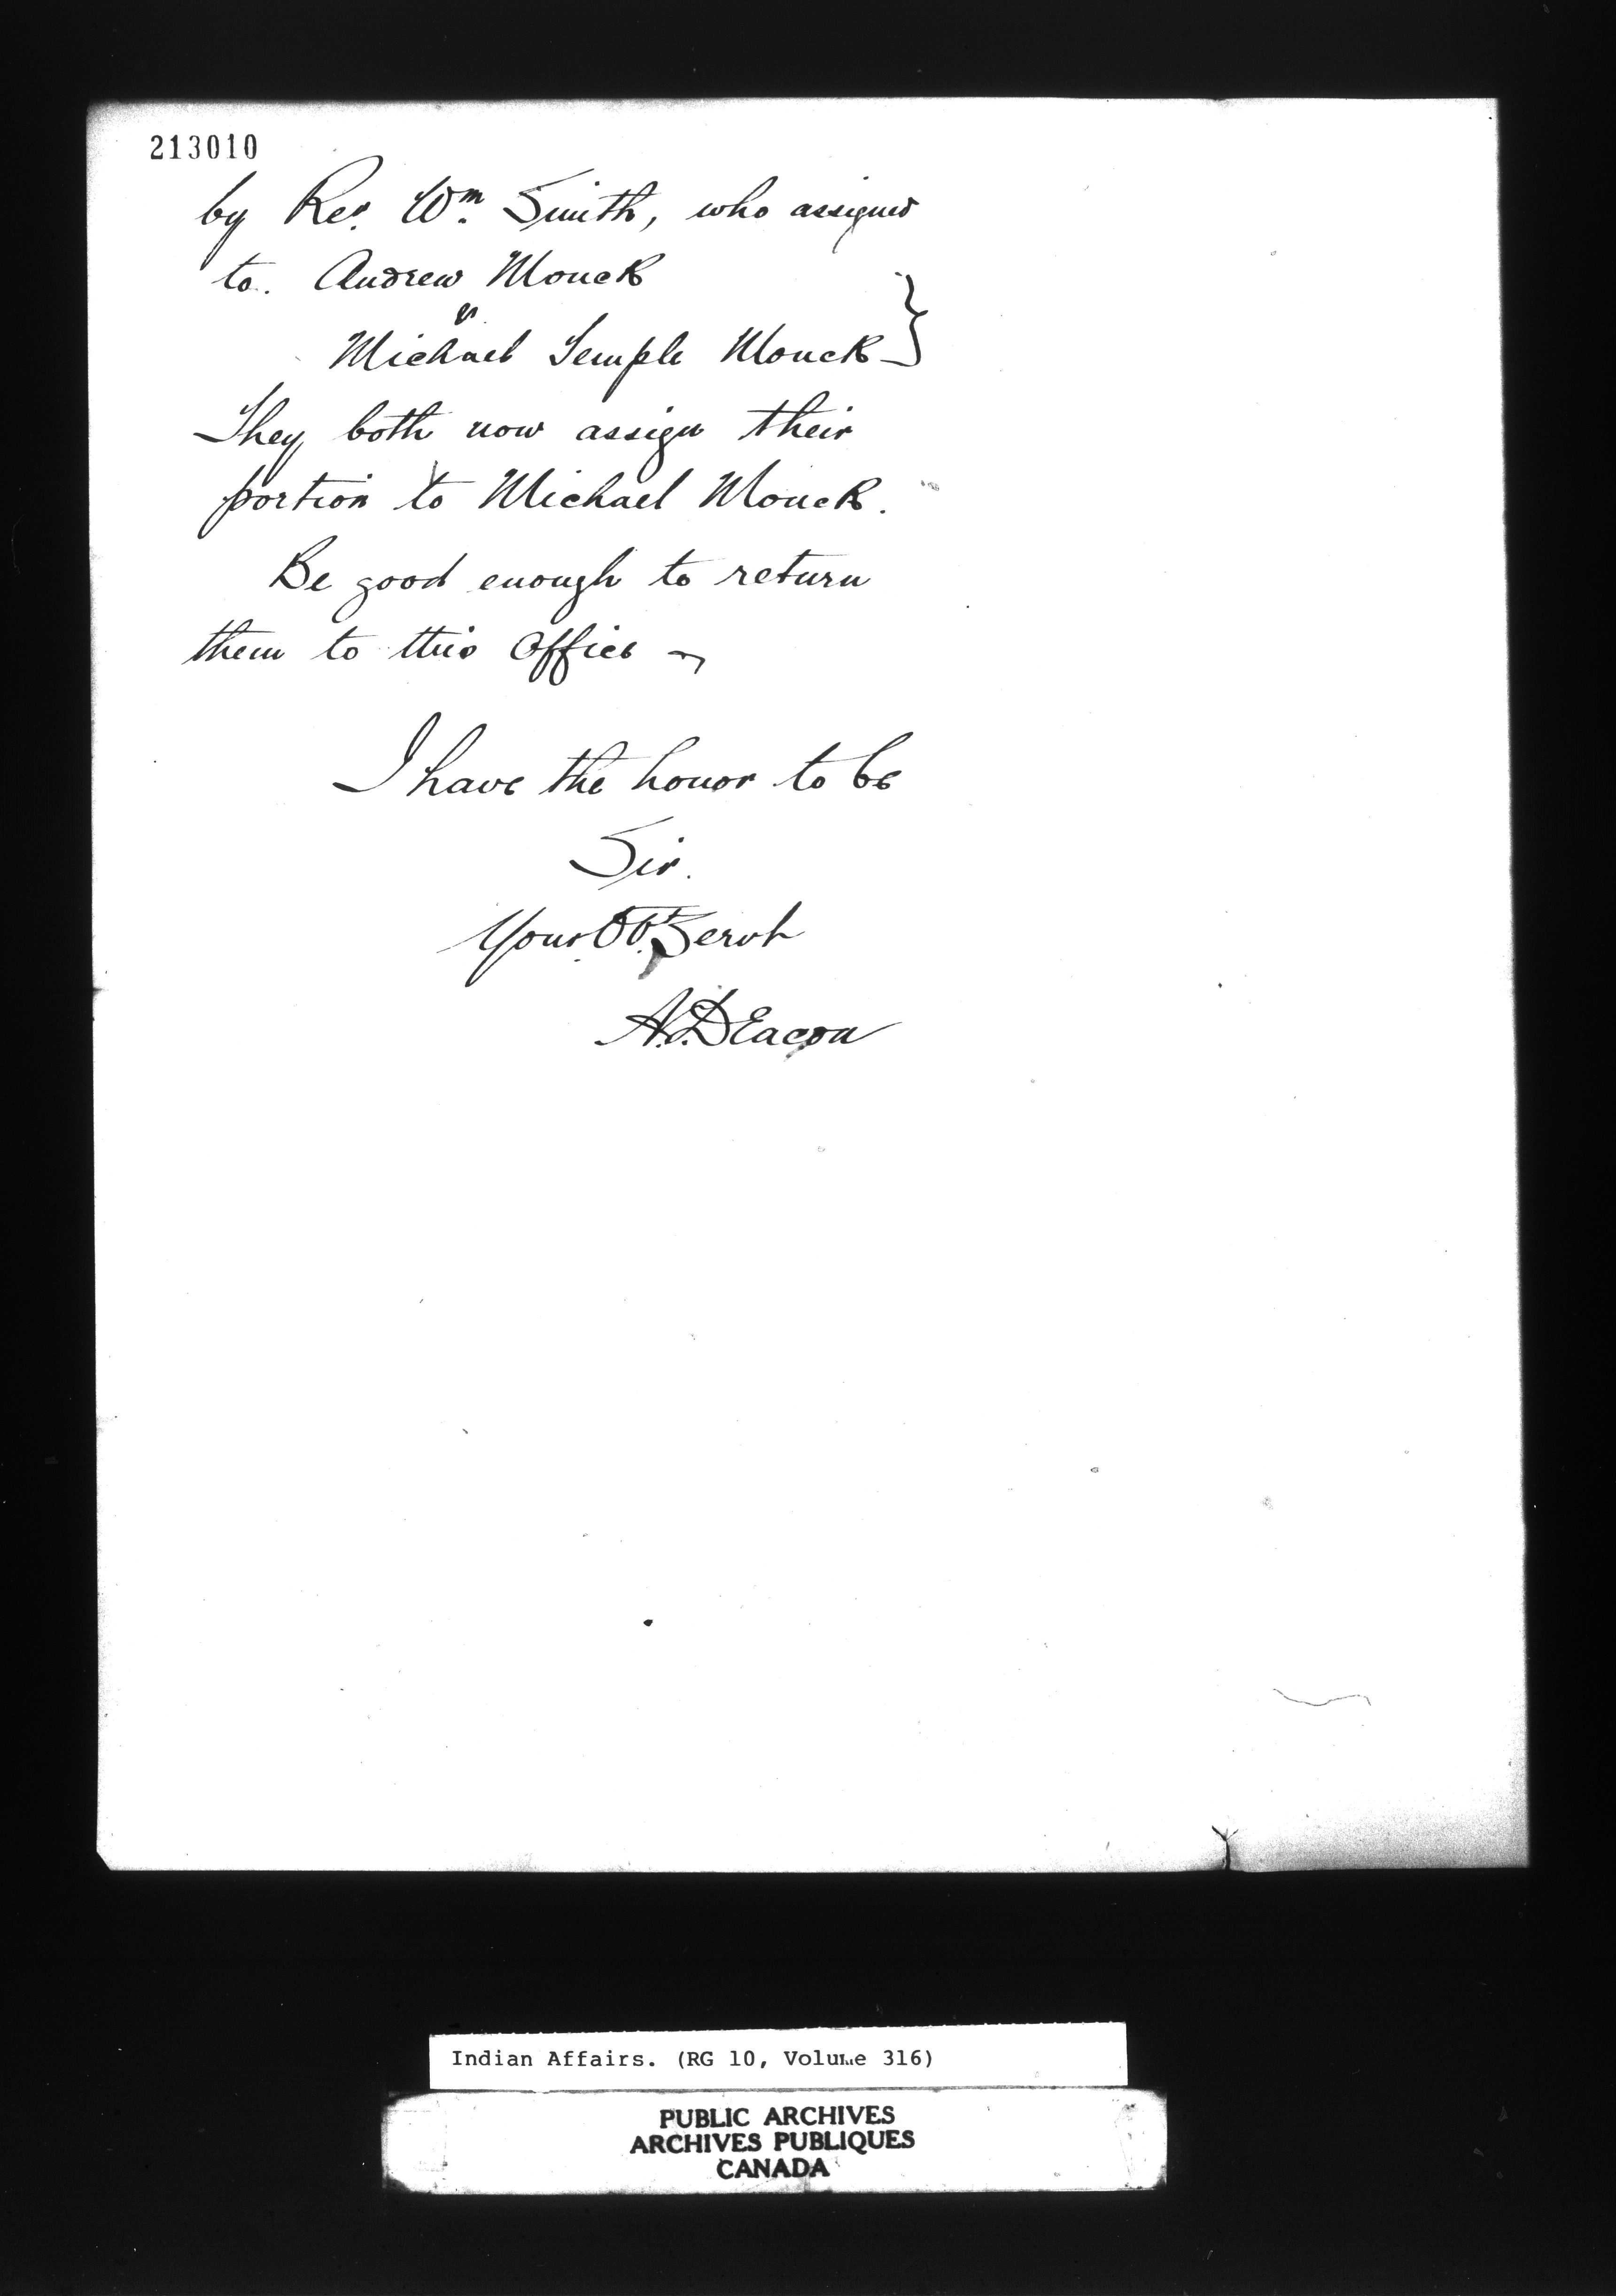 213010
by Rev. Wm. Smith, who assigned
to. Andrew Monck
&
Michael Semple Monck }
They both now assign their
portion to Michael Monck.
Be good enough to return
them to this office
I have the honor to be
Sir.
Your Ob. Servt
A. DEacon
Indian Affairs. (RG 10, Volume 316)
PUBLIC ARCHIVES
ARCHIVES PUBLIQUES
CANADA